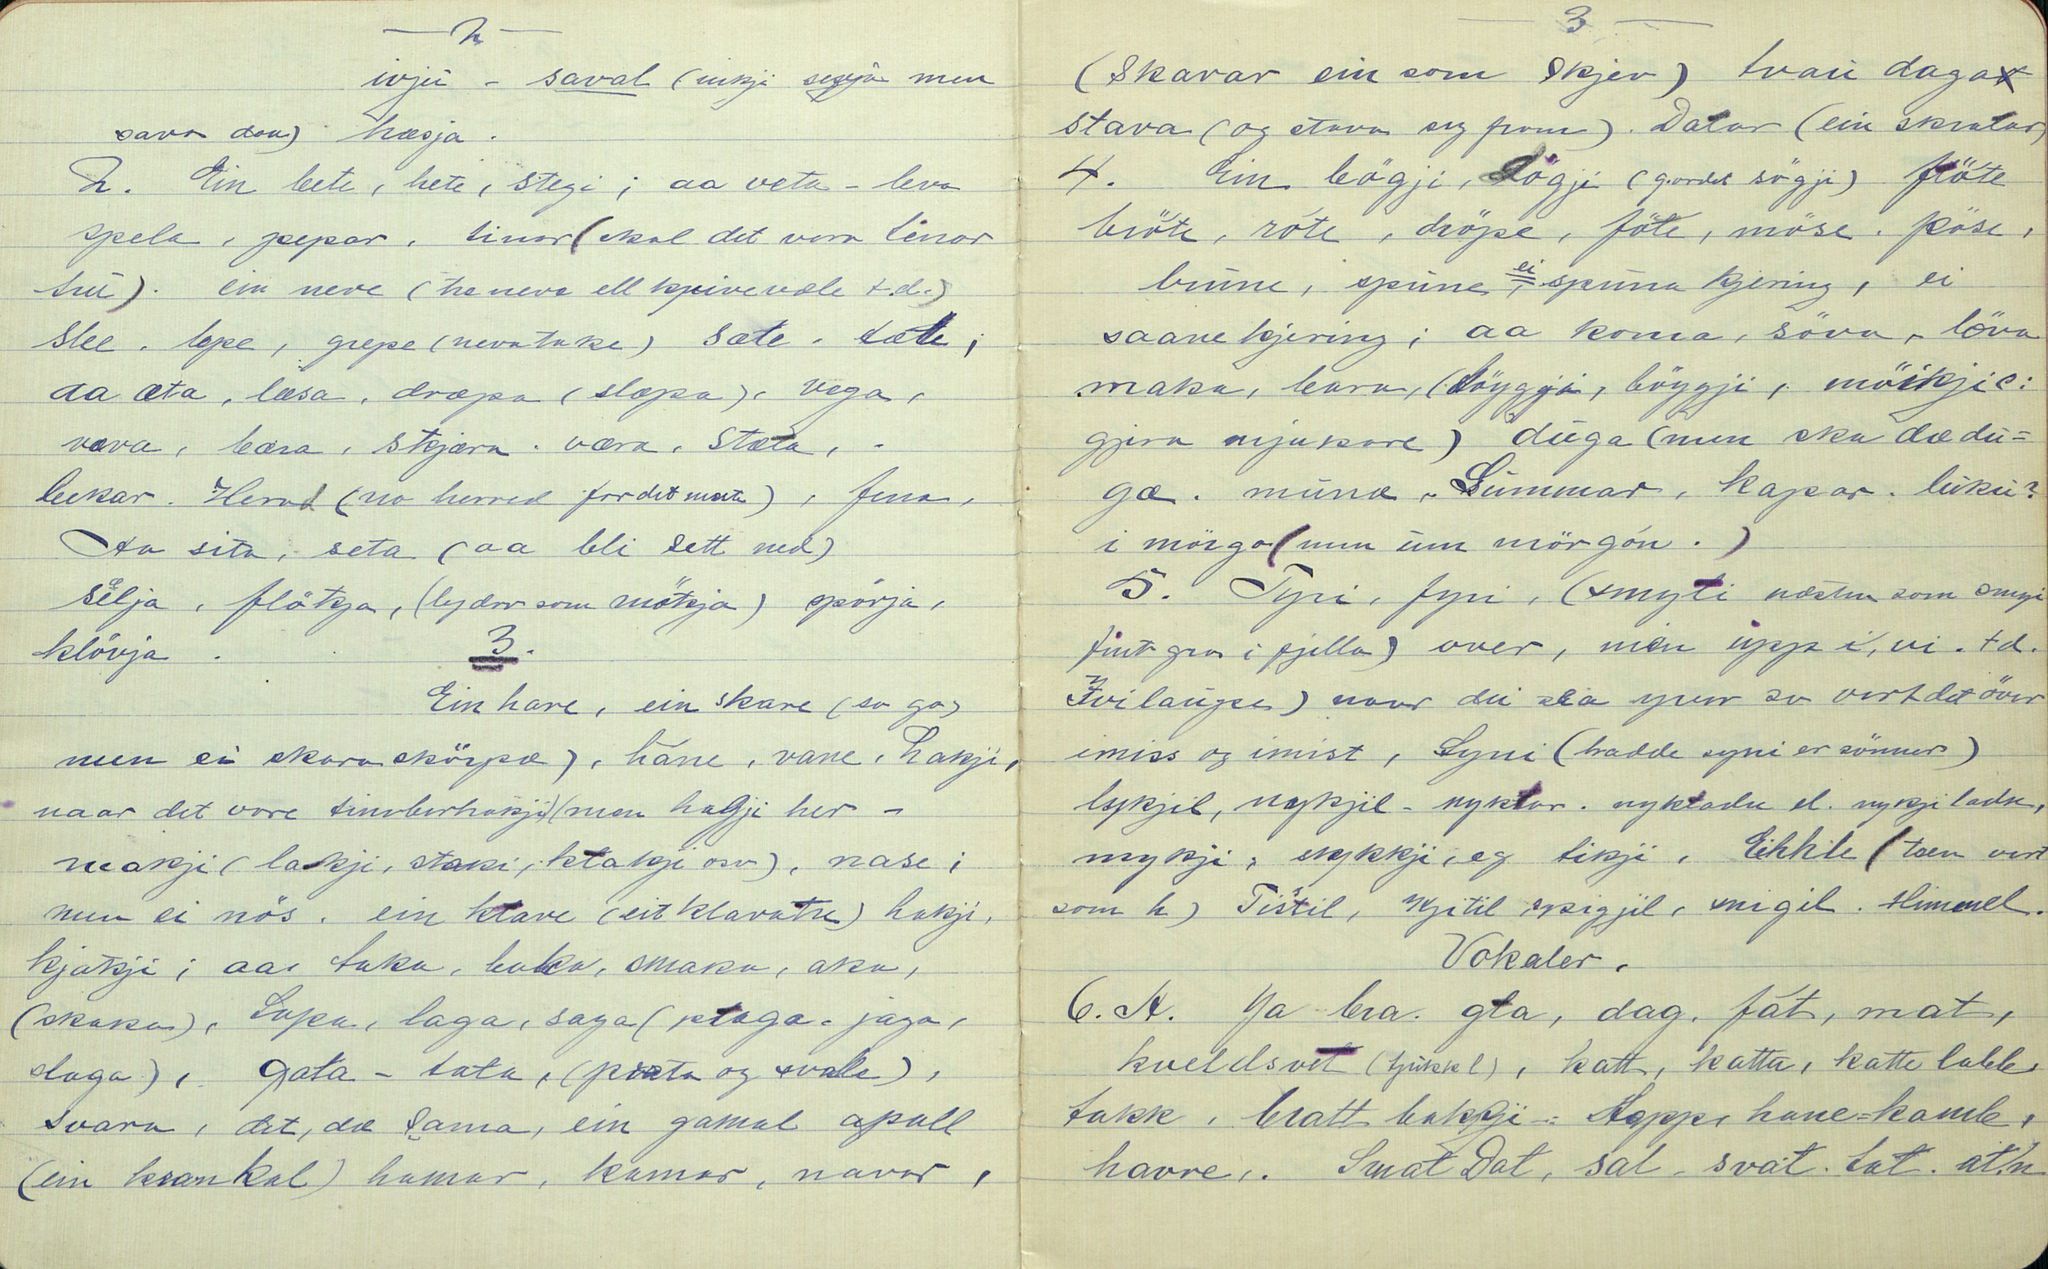 2
ivjü - saval (inkji segja men
sava daa) hæsja.
2. Ein bete, hete, stegi; aa veta - leva
spela, pepar, tinar (skal det vera tenar
tru). ein neve (ha neva ell knivevæle t.d.)
slee. lepe, grepe (nevatake) sæte. tæte;
aa æta, læsa, dræpa (slæpa), vega,
væva, bæra, skjæra. væra, stæla, -
bekar. Herad (no herred for det meste), fena,
Aa sita, seta (aa bli sett ned)
selja, flötja, (lyder som mökja) spörja,
klövja. 3.
Ein hare, ein skare (so ga)
men ei skara skörpæ), hane, vane, hakji,
naar det vore timberhakji) (men hakji her -
makji (lakji, staki, klakji osv), nase;
men ei nös. ein klave (eit klavatre) hakji,
kjakji; aa, taka, baka, smaka, aka,
(skaka), Lapa, laga, saga (plaga. jaga,
slaga), gata - tata, (prata og svale),
svara, det, dæ sama, ein gamal apall
(ein krankal) hamar, kamar, navar,
3
(skavar ein som skjev) trau dagar
stava (og stava seg fram). Datar (ein skratar)
4. Ein bögji, Lögji (gardet sögji) flöte
bröte, röte, dröpe, föte, möse. pöse,
brüne, spüne, ei spüna kjering, ei
saane kjering; aa koma, söva, löva
maka, bara, (Löyggja, böyggji, möikji c:
gjera mjukare) düga (men ska dædü=
gæ. münæ, Sümmar, kapar. lükü?
i mörgo (men üm mörgón.)
5. Fyri, fyri, (smyli næsten som smyi
fint gras i fjella) over, men üpp i, vi. td.
Ivilaupe) naar du sla yver so vert det över
imiss og imist, Syni (hadde syni er sönner)
lykjil, nykjil - nyklar. nykladu el. nykjiladu,
mykji, stykkji, eg tikji, Eikkle (tæn vert
som h) Tistil, kjitil, spigjil, snigil. Himmel.
Vokaler.
6. A. Ja bra. gla, dag, fat, mat,
kveldsvet (tjukk l), katt, katta, katte labb,
takk, bratt bakkji - Hopp, hane-kamb,
havre,. Smal Dal, sal - sval. tal. al'n